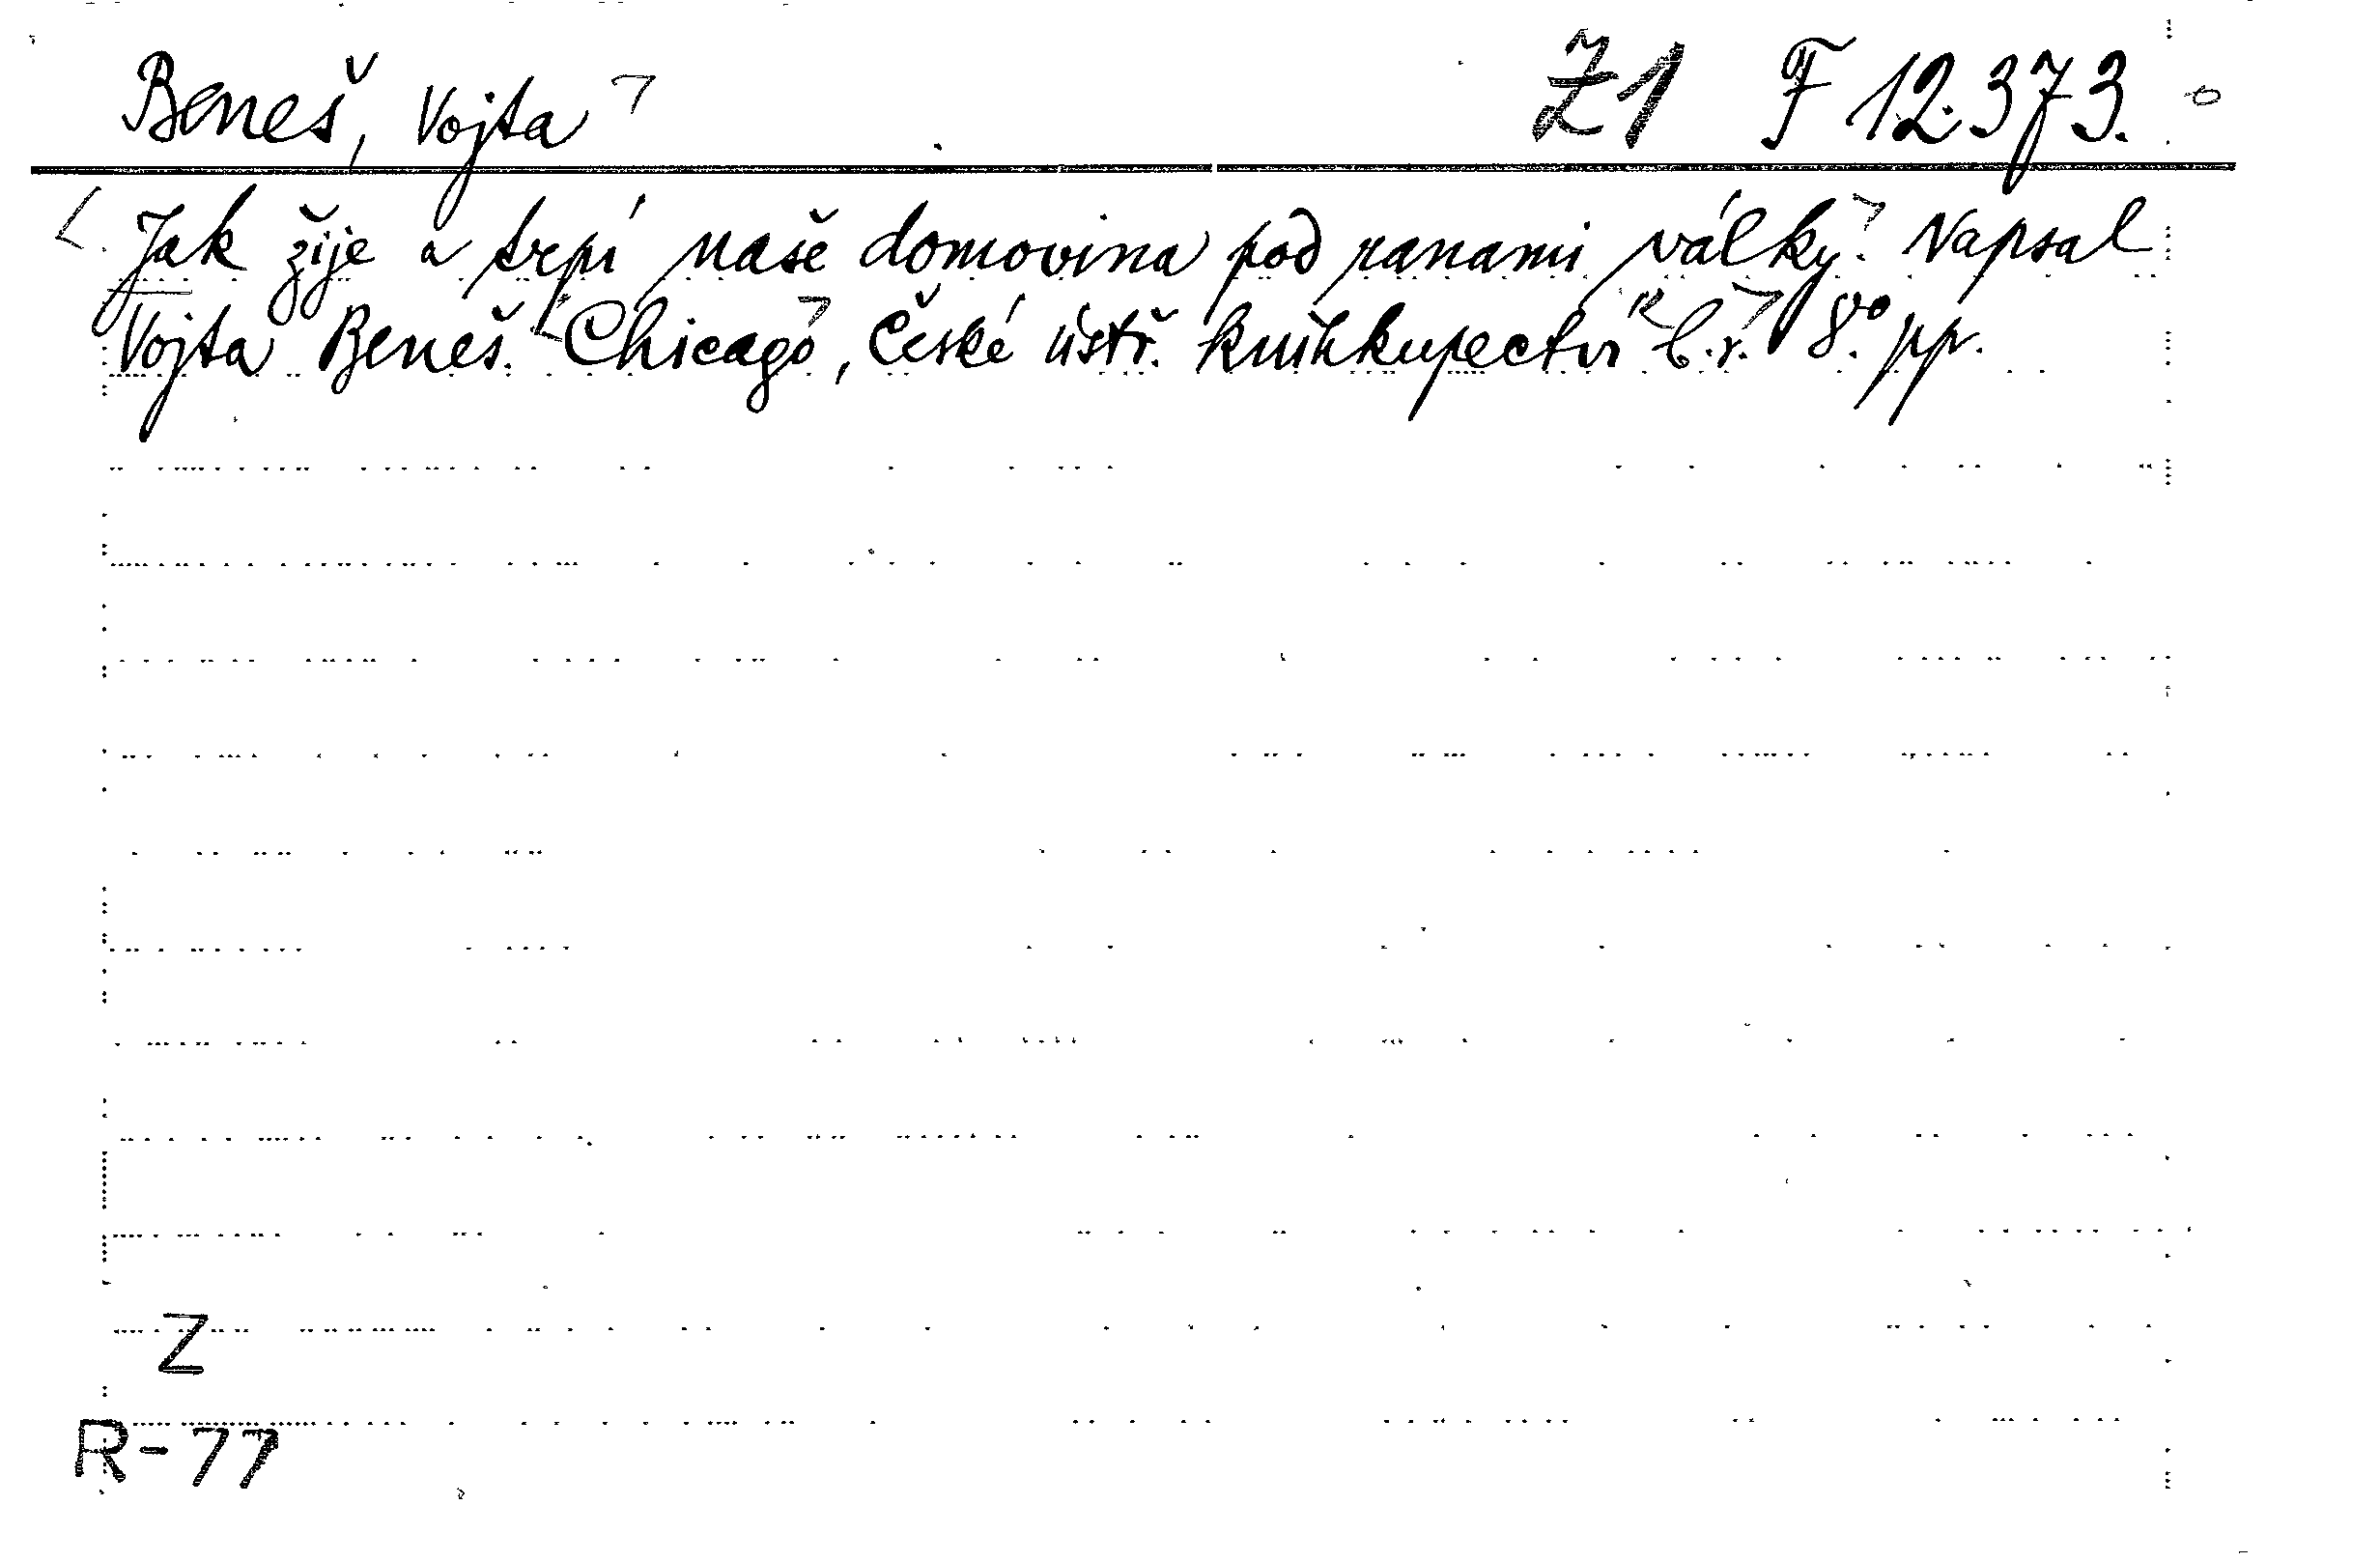 Beneš, Vojta Z1 F 12.373.
Jak žije a trpí naše domovina pod ranami války. Napsal
Vojta Beneš. Chicago, České ústř. knihkupectví b.r. 8° pp.
Z
R-77